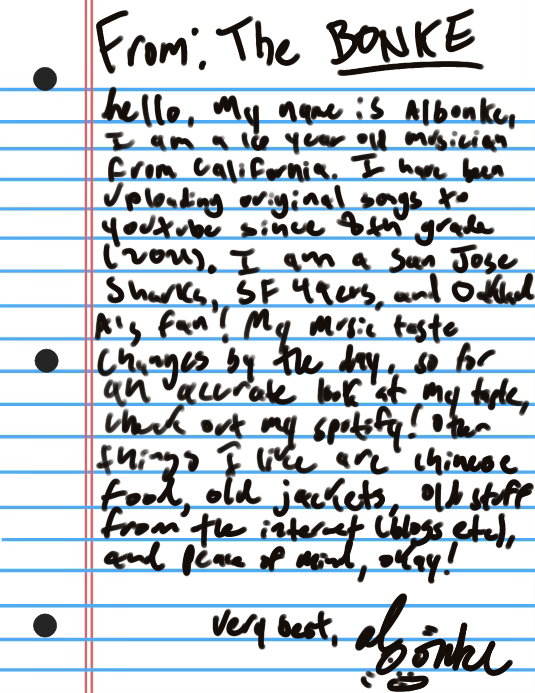 From: The BONKE
hello, My name is Albonke,
I am a 16 year old musician
from California. I have been
uploading original songs to
youtube since 8th grade
I am a San Jose
Sharks, SF 49ers, and Oakland
A's fan! My music taste
changes by the day, so for
an accurate look at my taste,
check out my spotify! Other
things I like are chinese
food, old jackets, old stuff
from the internet (blogs etc),
and peace of mind, okay!
very best, albonke